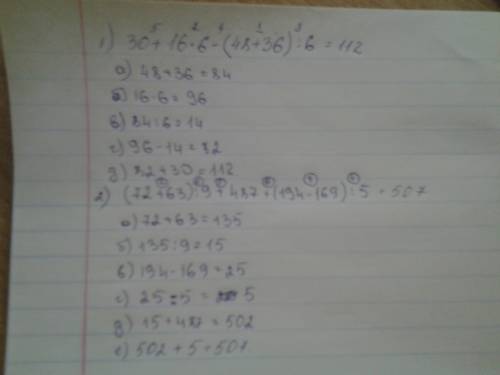 1) 30 + 16 · 6 - (48 + 36) : 6 = 112
а) 48 + 36 = 84
б) 16 · 6 = 96
в) 84 : 6 = 14
г) 96 - 14 = 82
д) 82 + 30 = 112
2) (72 + 63) : 9 + 487 + (194 - 169) : 5 = 507
а) 72 + 63 = 135
б) 135 : 9 = 15
в) 194 - 169 = 25
г) 25 : 5 = 5
д) 15 + 487 = 502
е) 502 + 5 = 507